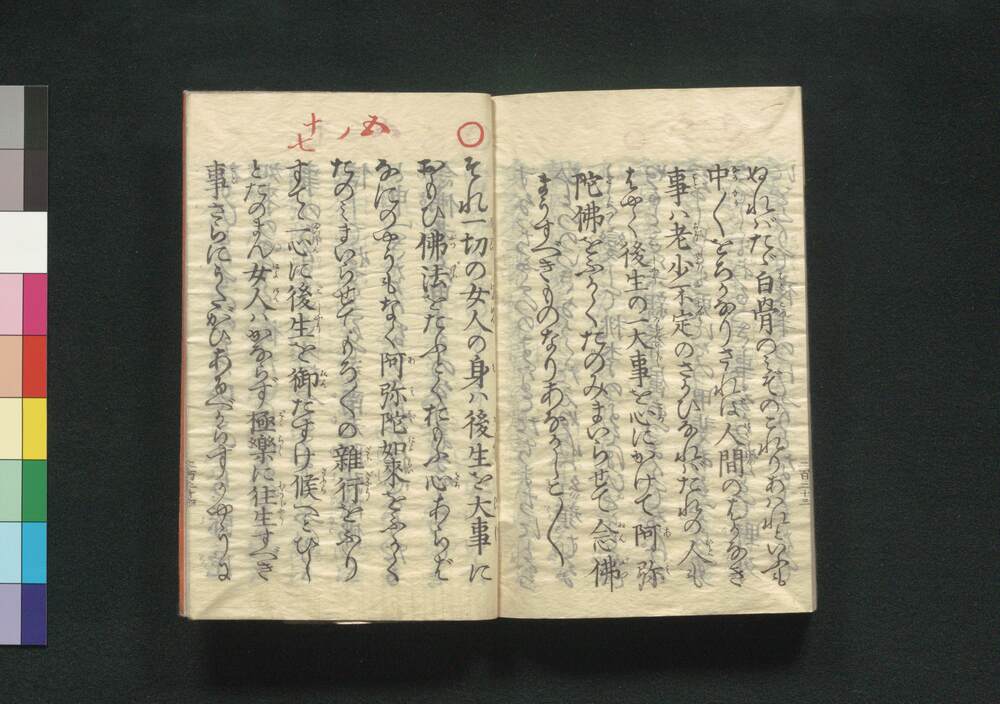 ぬればたゞ白骨のミぞのこれりあハれといふも
中〱をろかなりされば人間のはかなき
事ハ老少不定のさかひなれバたれの人も
はやく後生の一大事を心にかけて阿弥
陀佛をふかくたのみまいらせて念佛
まうすべきものなりあなかしこ〱
一百三十三
〇
五ノ
十七
それ一切の女人の身ハ後生を大事に
おもひ佛法をたふとくおもふ心あらバ
なにのやうもなく阿弥陀如来をふかく
たのミまいらせてもろ〱の雜行をふり
すてゝ一心に後生を御たすけ候へとひし
とたのまん女人ハかならず極樂に往生すべき
事さらにうたがひあるべからずかやうに